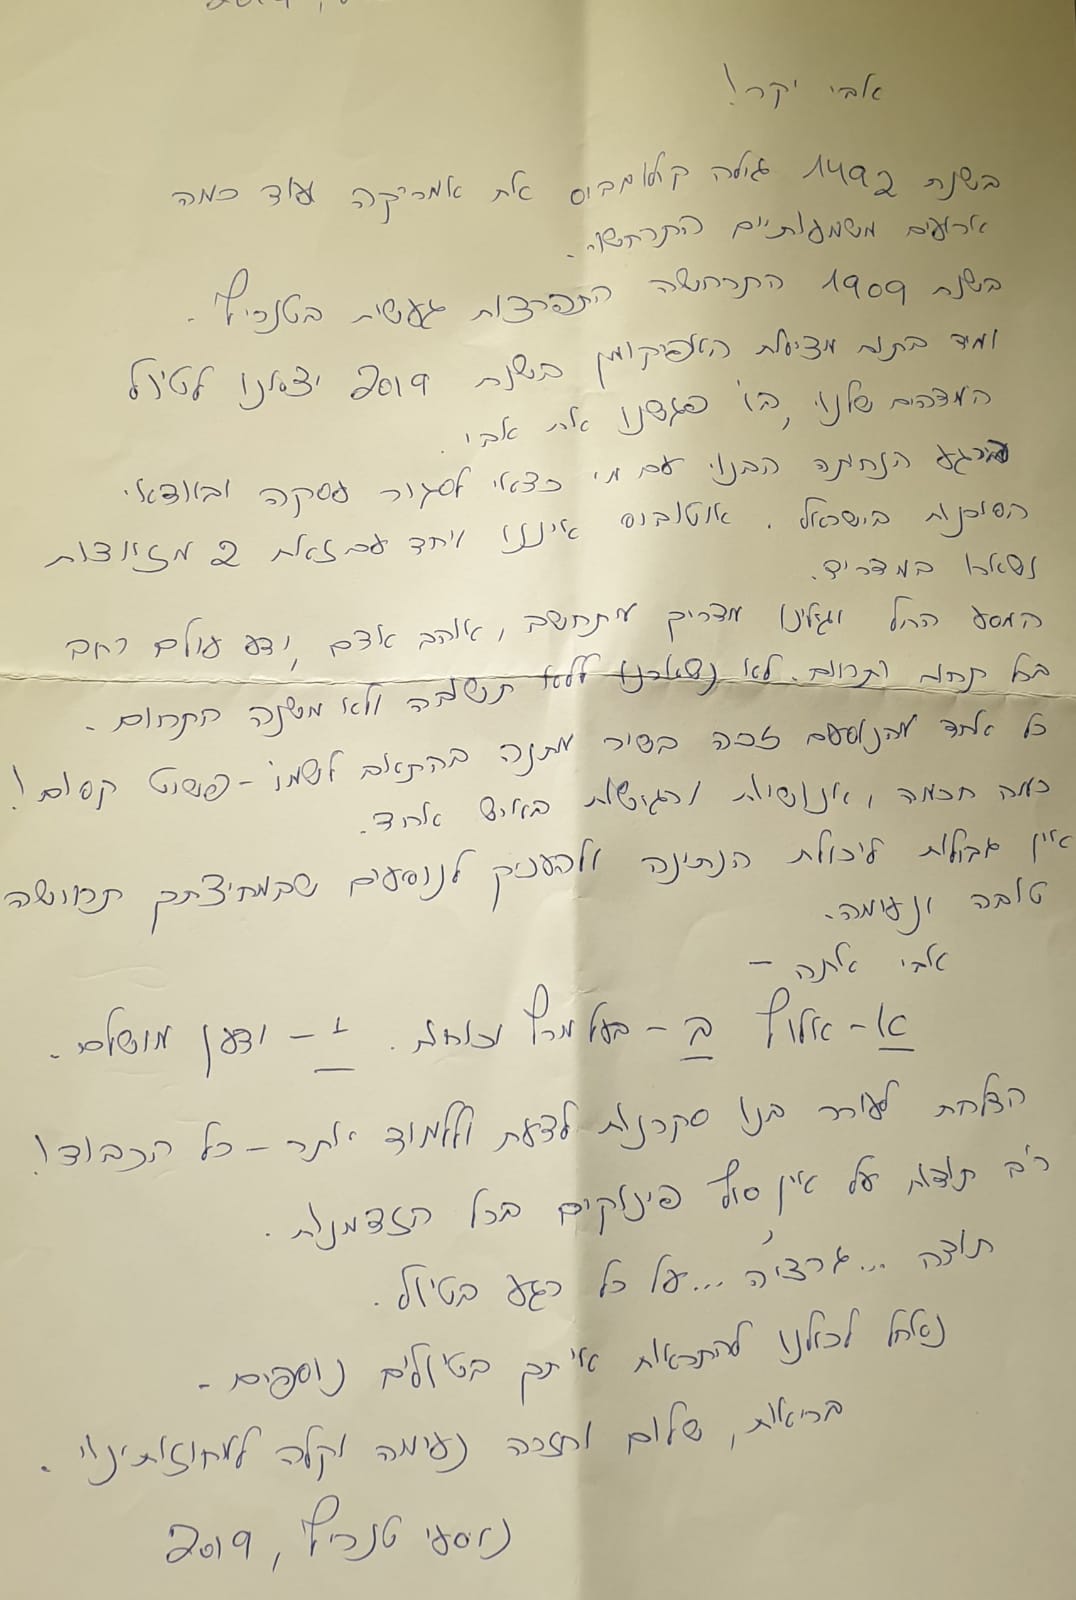 2019
אבי יקר!
בשנת 1492 גילה קולומבוס את אמריקה ועוד כמה
ארועים משמעותיים התרחשו.
בשנת 1909 התרחשה התפרצות געשית בטנריף.
ומיד בתום מציאת האפיקומן בשנת 2019 יצאנו לטיול
המדהים שלנו, בו פגשנו את אבי.
ברגע הנחיתה הבנו עם מי כדאי לסגור עסקה ובוודאי
הסוכנות בישראל. אוטובוס איננו ויחד עם זאת 2 מזוודות
נשארו במדריד.
המסע החל וגילינו מדריך מתחשב, אוהב אדם, ידע עולם רחב
בכל תחום ותחום. לא נשארנו ללא תשובה ולא משנה התחום.
כל אחד מהנוסעים זכה בשיר מתנה בהתאם לשמו - פשוט קסום!
כמה חכמה, אנושיות ורגישות באיש אחד.
אין גבולות ליכולת הנתינה ולהעניק לנוסעים שבמחיצתך תחושה
טובה ונעימה.
אבי אתה -
א - אלוף ב - בעל מרץ וכוחות. י - ידען מושלם.
הצלחת לעורר בנו סקרנות לדעת וללמוד יותר - כל הכבוד!
רב תודות על אין סוף פינוקים בכל הזדמנות.
תודה ... גרציה ... על כל רגע בטיול.
נאחל לכולנו להתראות איתך בטיולים נוספים.
בריאות, שלום וחזרה נעימה וקלה למחוזותינו.
נוסעי טנריף, 2019